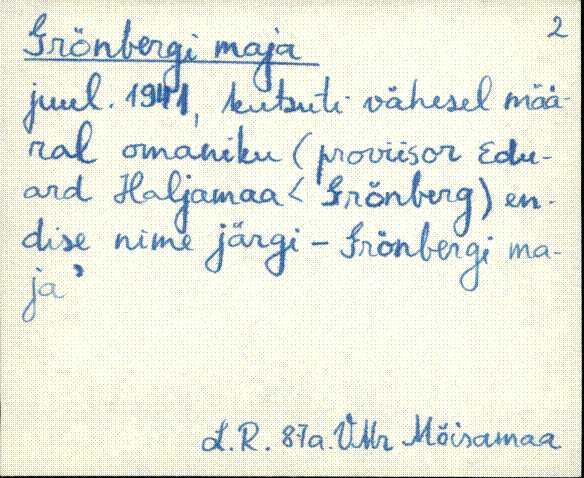 2
Grönbergi maja
juul. 1941, kutsuti vähesel mää-
ral omaniku (proviisor Edu-
ard Haljamaa < Grönberg) en-
dise nime järgi - Grönbergi ma-
ja"
L.R. 87a. VMr Mõisamaa